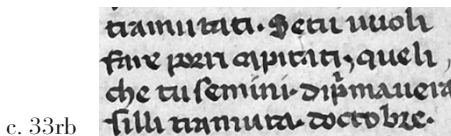 tramutati. Setu uuoli
fare porri capitati, queli
che tu semini. dip̃mauera
c. 33rb silli tramuta. doctobre.